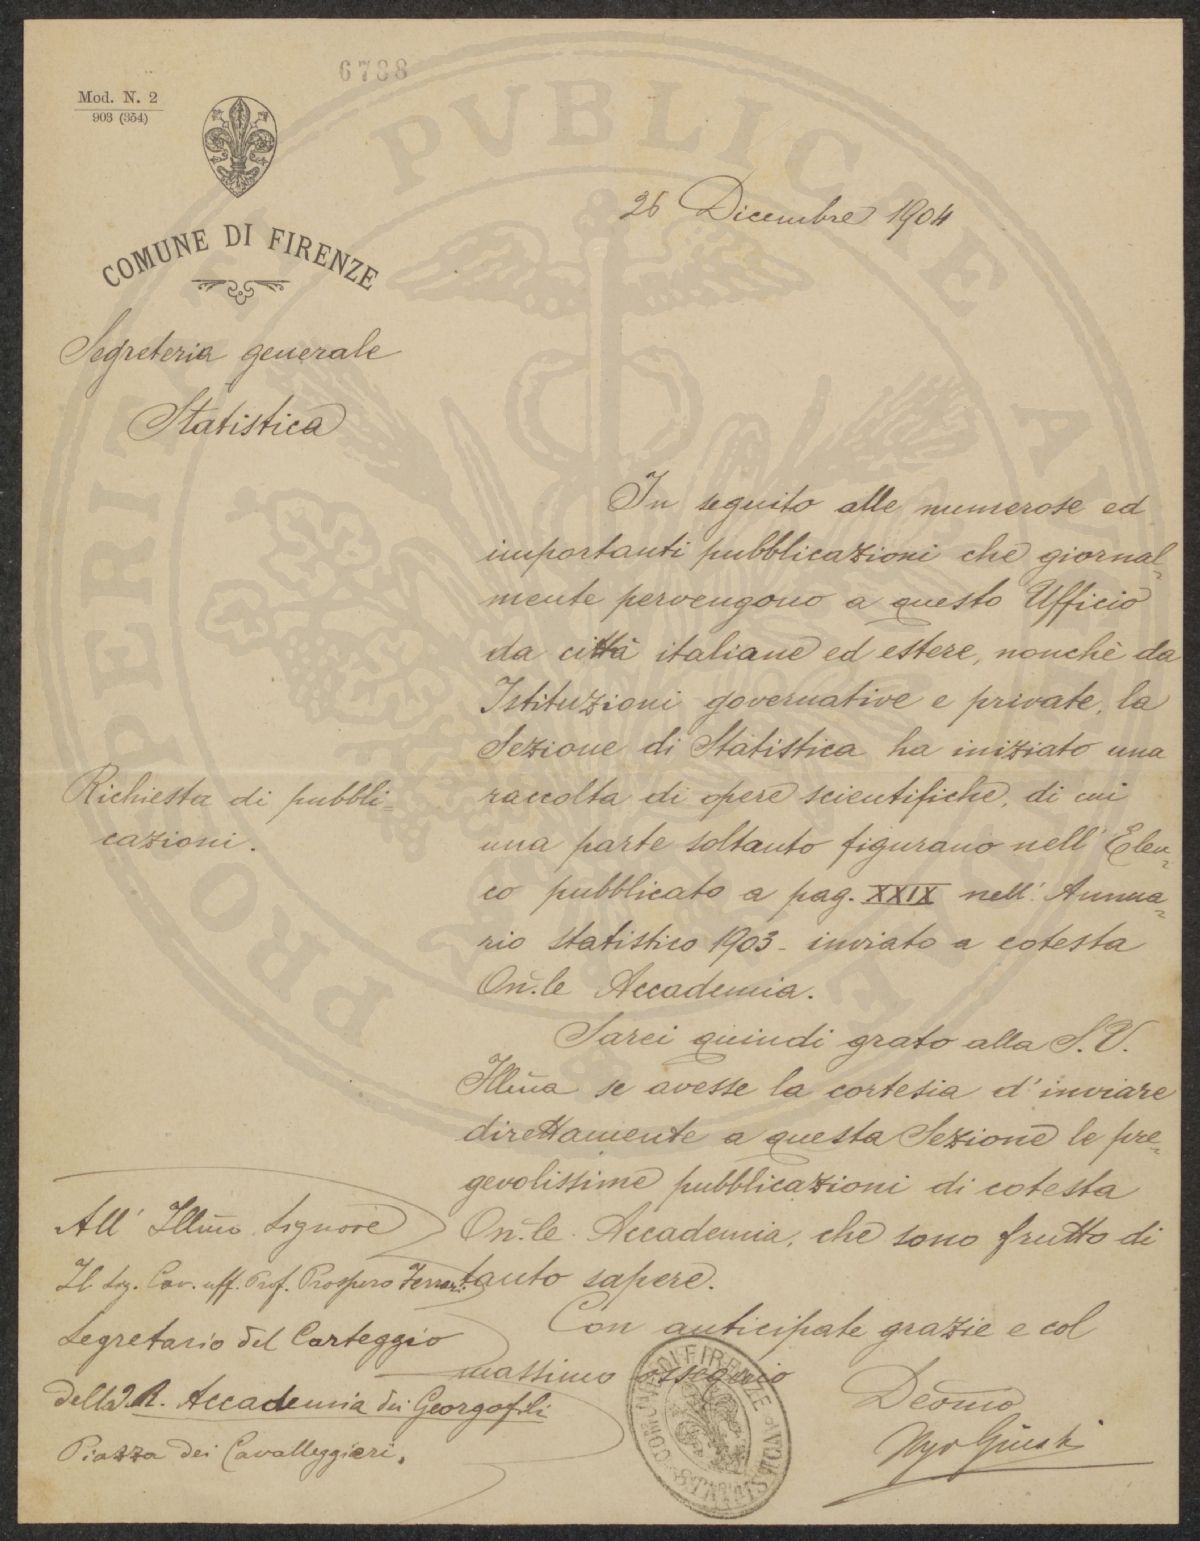 6788
Mod. N. 2
903 (354)
COMUNE DI FIRENZE
26 Dicembre 1904
Segreteria generale
Statistica
Richiesta di pubbli-
cazioni.
In seguito alle numerose ed
importanti pubblicazioni che giornal-
mente pervengono a questo Ufficio
da città italiane ed estere, nonchè da
Istituzioni governative e private, la
Sezione di Statistica ha iniziato una
raccolta di opere scientifiche, di cui
una parte soltanto figurano nell'Elen-
co pubblicato a pag. XXIX nell'Annua-
rio statistico 1903 - inviato a cotesta
On.le Accademia.
Sarei quindi grato alla S.V.
Illma se avesse la cortesia d'inviare
direttamente a questa Sezione le pre-
gevolissime pubblicazioni di cotesta
On.le Accademia, che sono frutto di
tanto sapere.
Con anticipate grazie e col
massimo ossequio
Devmo
Ugo Giusti
All' Illmo Signore
Il Sig. Cav. uff. Prof. Prospero Ferrari
Segretario del Carteggio
della R. Accademia dei Georgofili
Piazza dei Cavalleggieri.
COMUNE DI FIRENZE
PROPERITATI PVBLICAE AVGENDAE